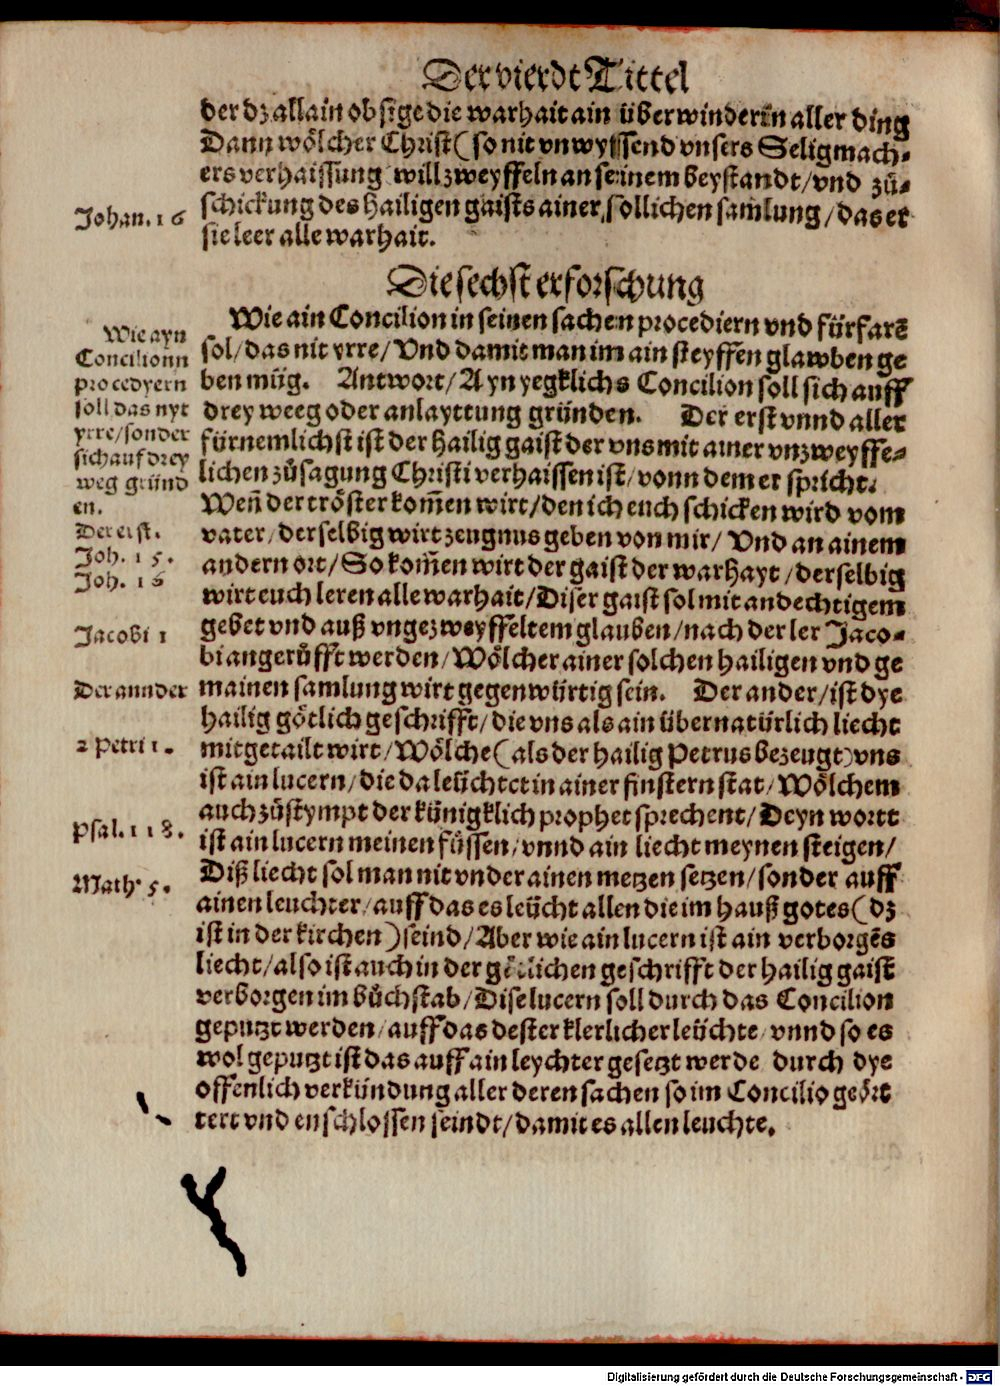 Der vierdt Tittel
der dz allain obsige die warhait ain überwinderin aller ding
Dann wölcher Christ (so nit vnwyssend vnsers Seligmach-
ers verhaissung will zweyffeln an seinem beystandt/vnd zů-
schickung des hailigen gaists ainer, sollichen samlung/das er
sie leer alle warhait.
Johan. 16
Die sechst erforschung
Wie ain Concilion in seinen sachen procediern vnd fürfarē
sol/das nit yrre/Vnd damit man im ain steyffen glawben ge
ben müg. Antwort/Ayn yegklichs Concilion soll sich auff
drey weeg oder anlayttung gründen. Der erst vnnd aller
fürnemlichst ist der hailig gaist der vns mit ainer vnzweyffe-
lichen zůsagung Christi verhaissen ist/vonn dem er spricht.
Weñ der tröster kom̃en wirt/den ich euch schicken wird vom
vater/derselbig wirt zeugnus geben von mir/Vnd an ainem
andern ort/So kom̃en wirt der gaist der warhayt/derselbig
wirt euch leren alle warhait/Diser gaist sol mit andechtigem
gebet vnd auß vngezweyffeltem glauben/nach der ler Jaco-
bi angerůfft werden/Wölcher ainer solchen hailigen vnd ge
mainen samlung wirt gegenwürtig sein. Der ander/ist dye
hailig götlich geschrifft/die vns als ain übernatürlich liecht
mitgetailt wirt/Wölche (als der hailig Petrus bezeugt) vns
ist ain lucern/die da leüchtet in ainer finstern stat/Wölchem
auch zůstympt der künigklich prophet sprechent/Deyn wortt
ist ain lucern meinen füssen/vnnd ain liecht meynen steigen/
Diß liecht sol man nit vnder ainen metzen setzen/sonder auff
ainen leuchter/auff das es leücht allen die im hauß gotes (dz
ist in der kirchen) seind/Aber wie ain lucern ist ain verborgēs
liecht/also ist auch in der götlichen geschrifft der hailig gaist
verborgen im bůchstab/Dise lucern soll durch das Concilion
geputzt werden/auff das dester klerlicher leüchte/vnnd so es
wol geputzt ist das auff ain leychter gesetzt werde durch dye
offenlich verkündung aller deren sachen so im Concilio geört
tert vnd enschlossen seindt/damit es allen leuchte.
Wie ayn
Concilionn
procedyern
soll das nyt
yrre/sonder
sich auf drey
weg gründ
en.
Der erst.
Joh. 15.
Joh. 16
Jacobi 1
Der annder
2 Petri 1.
Psal. 118.
Math. 5.
Digitalisierung gefördert durch die Deutsche Forschungsgemeinschaft - DFG